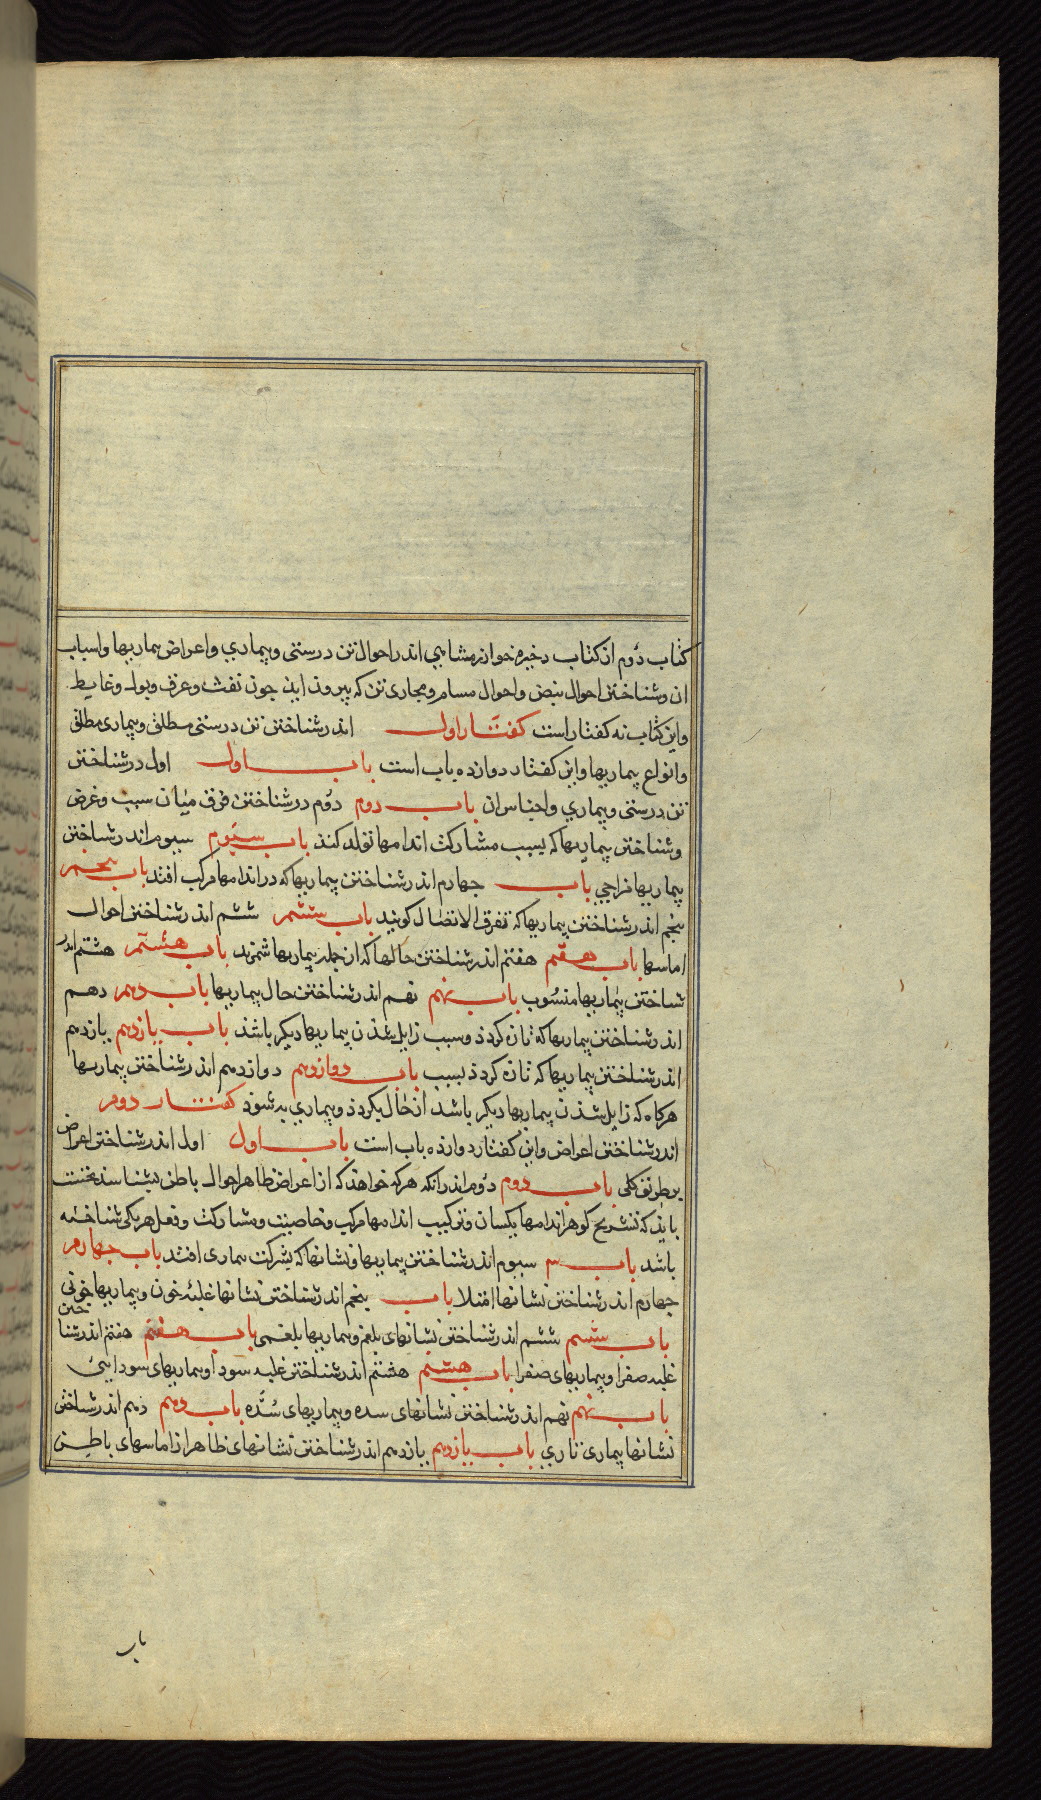 کتاب دوم از کتاب دخیره خوارزمشاهی اندر احوال تن درستی و بیماری و اعراض بیماریها و اسباب
ان و شناختن احوال نبض و احوال مسام و مجاری تن که بیرون اید چون نفث و عرق و بول و غایط
و این کتاب نه کفتار است کفتار اول اندر شناختن تن درستی مطلق و بیماری مطلق
و انواع بیماریها و این کفتار دوازده باب است باب اول اول در شناختن
تن درستی و بیماری و اجناس ان باب دوم دوم در شناختن فرق میان سبب و عرض
و شناختن بیماریها که بسبب مشارکت اندامها تولد کند باب سیوم سیوم اندر شناختن
بیماریها مزاجی باب جهارم اندر شناختن بیماریها که در اندامها مرکب افتد باب پنجم
پنجم اندر شناختن بیماریها که تفرق الاتصال کویند باب ششم ششم اندر شناختن احوال
اماسها باب هفتم هفتم اندر شناختن حالها که از جمله بیماریها شمرند باب هشتم هشتم اندر
شناختن بیماریها منسوب باب نهم نهم اندر شناختن حال بیماریها باب دهم دهم
اندر شناختن بیماریها که تازه کردد و سبب زایل شدن بیماریها دیکر باشد باب یازدهم یازدهم
اندر شناختن بیماریها که تازه کردد بسبب باب دوازدهم دوازدهم اندر شناختن بیماریها
هرکاه که زایل شدن بیماریها دیکر باشد از حال بکردد و بیماری به شود کفتار دوم
اندر شناختن اعراض و این کفتار دوازده باب است باب اول اول اندر شناختن اعراض
بر طریق کلی باب دوم دوم اندر انکه هرکه خواهد که از اعراض ظاهر احوال باطن بشناسد نخست
باید که تشریح کوهر اندامها یکسان و ترکیب اندامها مرکب و خاصیت و مشارکت و فعل هر یکی شناخته
باشد باب س سیوم اندر شناختن بیماریها و نشانها که بشرکت بیماری افتد باب جهارم
جهارم اندر شناختن نشانها امتلا باب پنجم اندر شناختن نشانها غلبه خون و بیماریها خونی
باب ششم ششم اندر شناختن نشانهای بلغم و بیماریها بلغمی باب هفتم هفتم اندر شناختن
غلبه صفرا و بیماریهای صفرا باب هشتم هشتم اندر شناختن غلبه سودا و بیماریهای سودایی
باب نهم نهم اندر شناختن نشانهای سده و بیماریهای سده باب دهم دهم اندر شناختن
نشانها بیماری تاری باب یازدهم یازدهم اندر شناختن نشانهای ظاهر از اماسهای باطن
باب